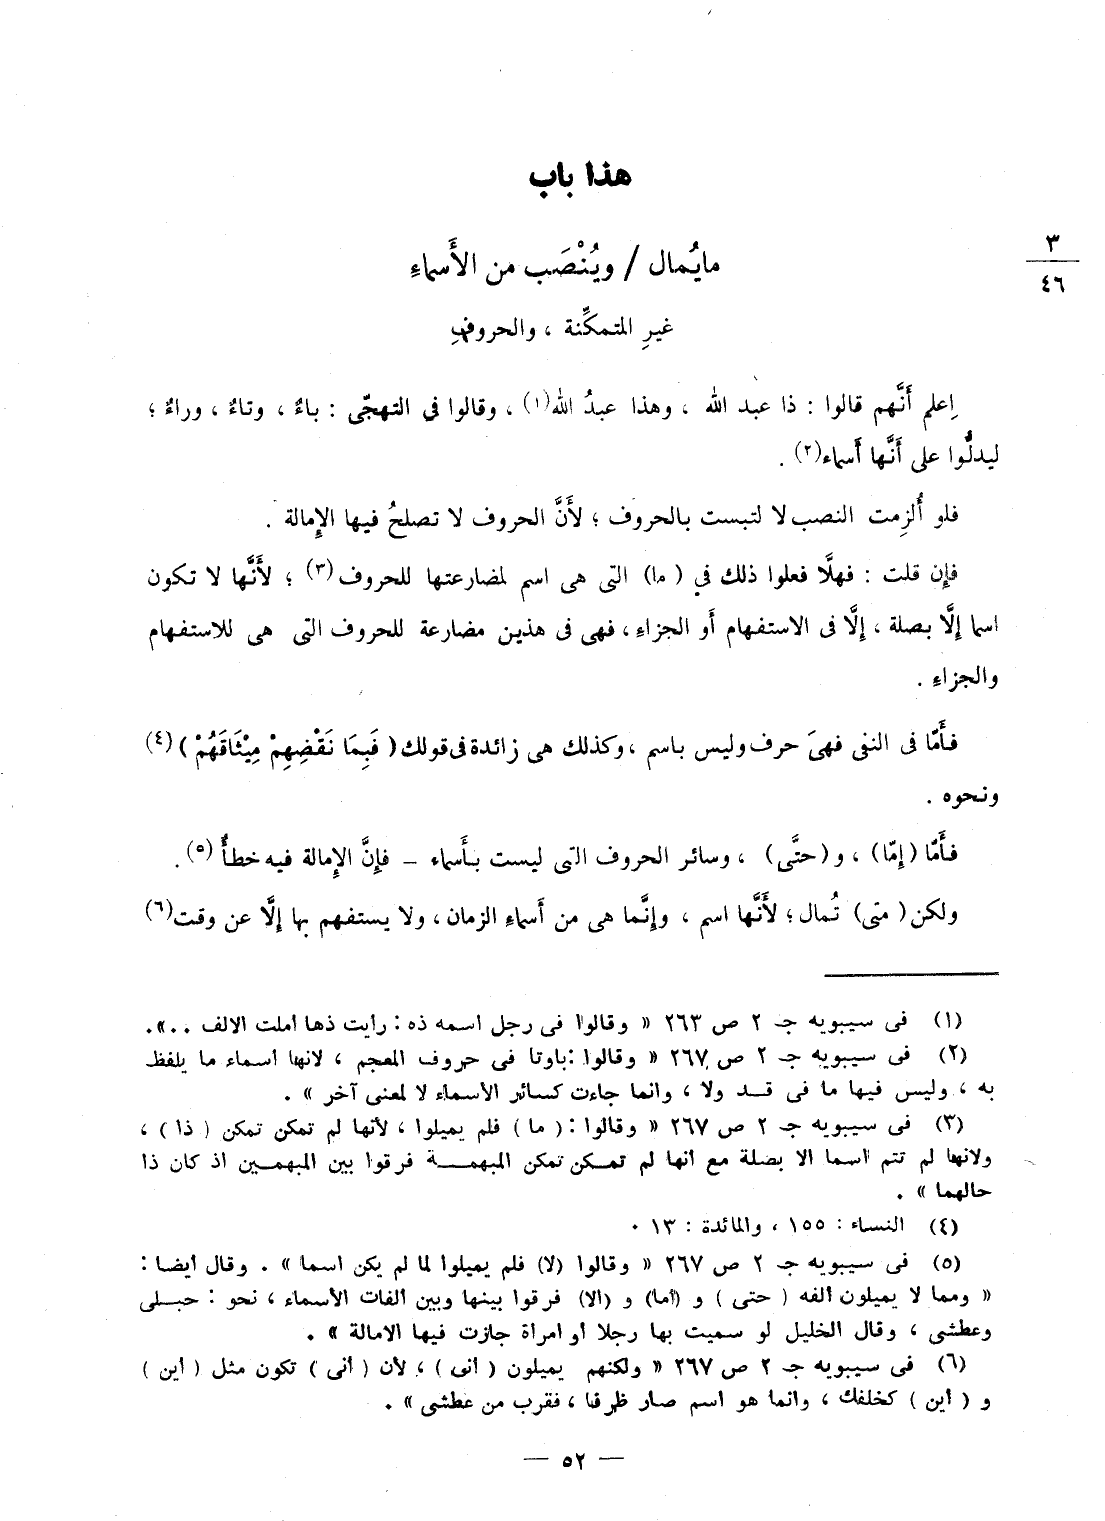 هذا باب
مايُمال / ويُنْصَب من الأَسماءِ
٣
٤٦
غيرِ المتمكِّنة ، والحروفِ
اِعلم أَنَّهم قالوا : ذا عبد الله ، وهذا عبدُ الله(١) ، وقالوا فى التهجّى : باءٌ ، وتاءٌ ، وراءٌ ؛
ليدلُّوا على أَنَّها أَسماء(٢) .
فلو أُلزِمت النصب لا لتبست بالحروف ؛ لأَنَّ الحروف لا تصلحُ فيها الإِمالة .
فإِن قلت : فهلَّا فعلوا ذلك فى ( ما) التى هى اسم لمضارعتها للحروف(٣) ؛ لأَنَّها لا تكون
اسما إِلَّا بصلة ، إِلَّا فى الاستفهام أَو الجزاءِ ، فهى فى هذين مضارعة للحروف التى هى للاستفهام
والجزاءِ .
فأَمّا فى النفى فهىَ حرف وليس باسم ، وكذلك هى زائدة فى قولك ( فَبِمَا نَقْضِهِمْ مِيْثَاقَهُمْ )(٤)
ونحوه .
فأَمّا (إِمّا) ، و(حتَّى) ، وسائر الحروف التى ليست بأَسماء – فإِنَّ الإِمالة فيه خطأٌ(٥) .
ولكن ( متى) تُمال ؛ لأَنَّها اسم ، وإِنَّما هى من أَسماءِ الزمان ، ولا يستفهم بها إِلَّا عن وقت(٦)
(١) فى سيبويه جـ ٢ ص ٢٦٣ « وقالوا فى رجل اسمه ذه : رايت ذها املت الالف ..».
(٢) فى سيبويه جـ ٢ ص ٢٦٧ « وقالوا :باوتا فى حروف المعجم ، لانها اسماء ما يلفظ
به ، وليس فيها ما فى قد ولا ، وانما جاءت كسائر الأسماء لا لمعنى آخر » .
(٣) فى سيبويه جـ ٢ ص ٢٦٧ « وقالوا : ( ما ) فلم يميلوا ، لأنها لم تمكن تمكن ( ذا ) ،
ولانها لم تتم اسما الا بصلة مع انها لم تمكن تمكن المبهمة فرقوا بين المبهمين اذ كان ذا
حالهما » .
(٤) النساء : ١٥٥ ، والمائدة : ١٣ .
(٥) فى سيبويه جـ ٢ ص ٢٦٧ « وقالوا (لا) فلم يميلوا لما لم يكن اسما » . وقال أيضا :
« ومما لا يميلون الفه ( حتى ) و (اما) و (الا) فرقوا بينها وبين الفات الأسماء ، نحو : حبلى
وعطشى ، وقال الخليل لو سميت بها رجلا او امراة جازت فيها الامالة » .
(٦) فى سيبويه جـ ٢ ص ٢٦٧ « ولكنهم يميلون ( أنى ) ، لأن ( أنى ) تكون مثل ( اين )
و ( اين ) كخلفك ، وانما هو اسم صار ظرفا ، فقرب من عطشى » .
— ٥٢ —